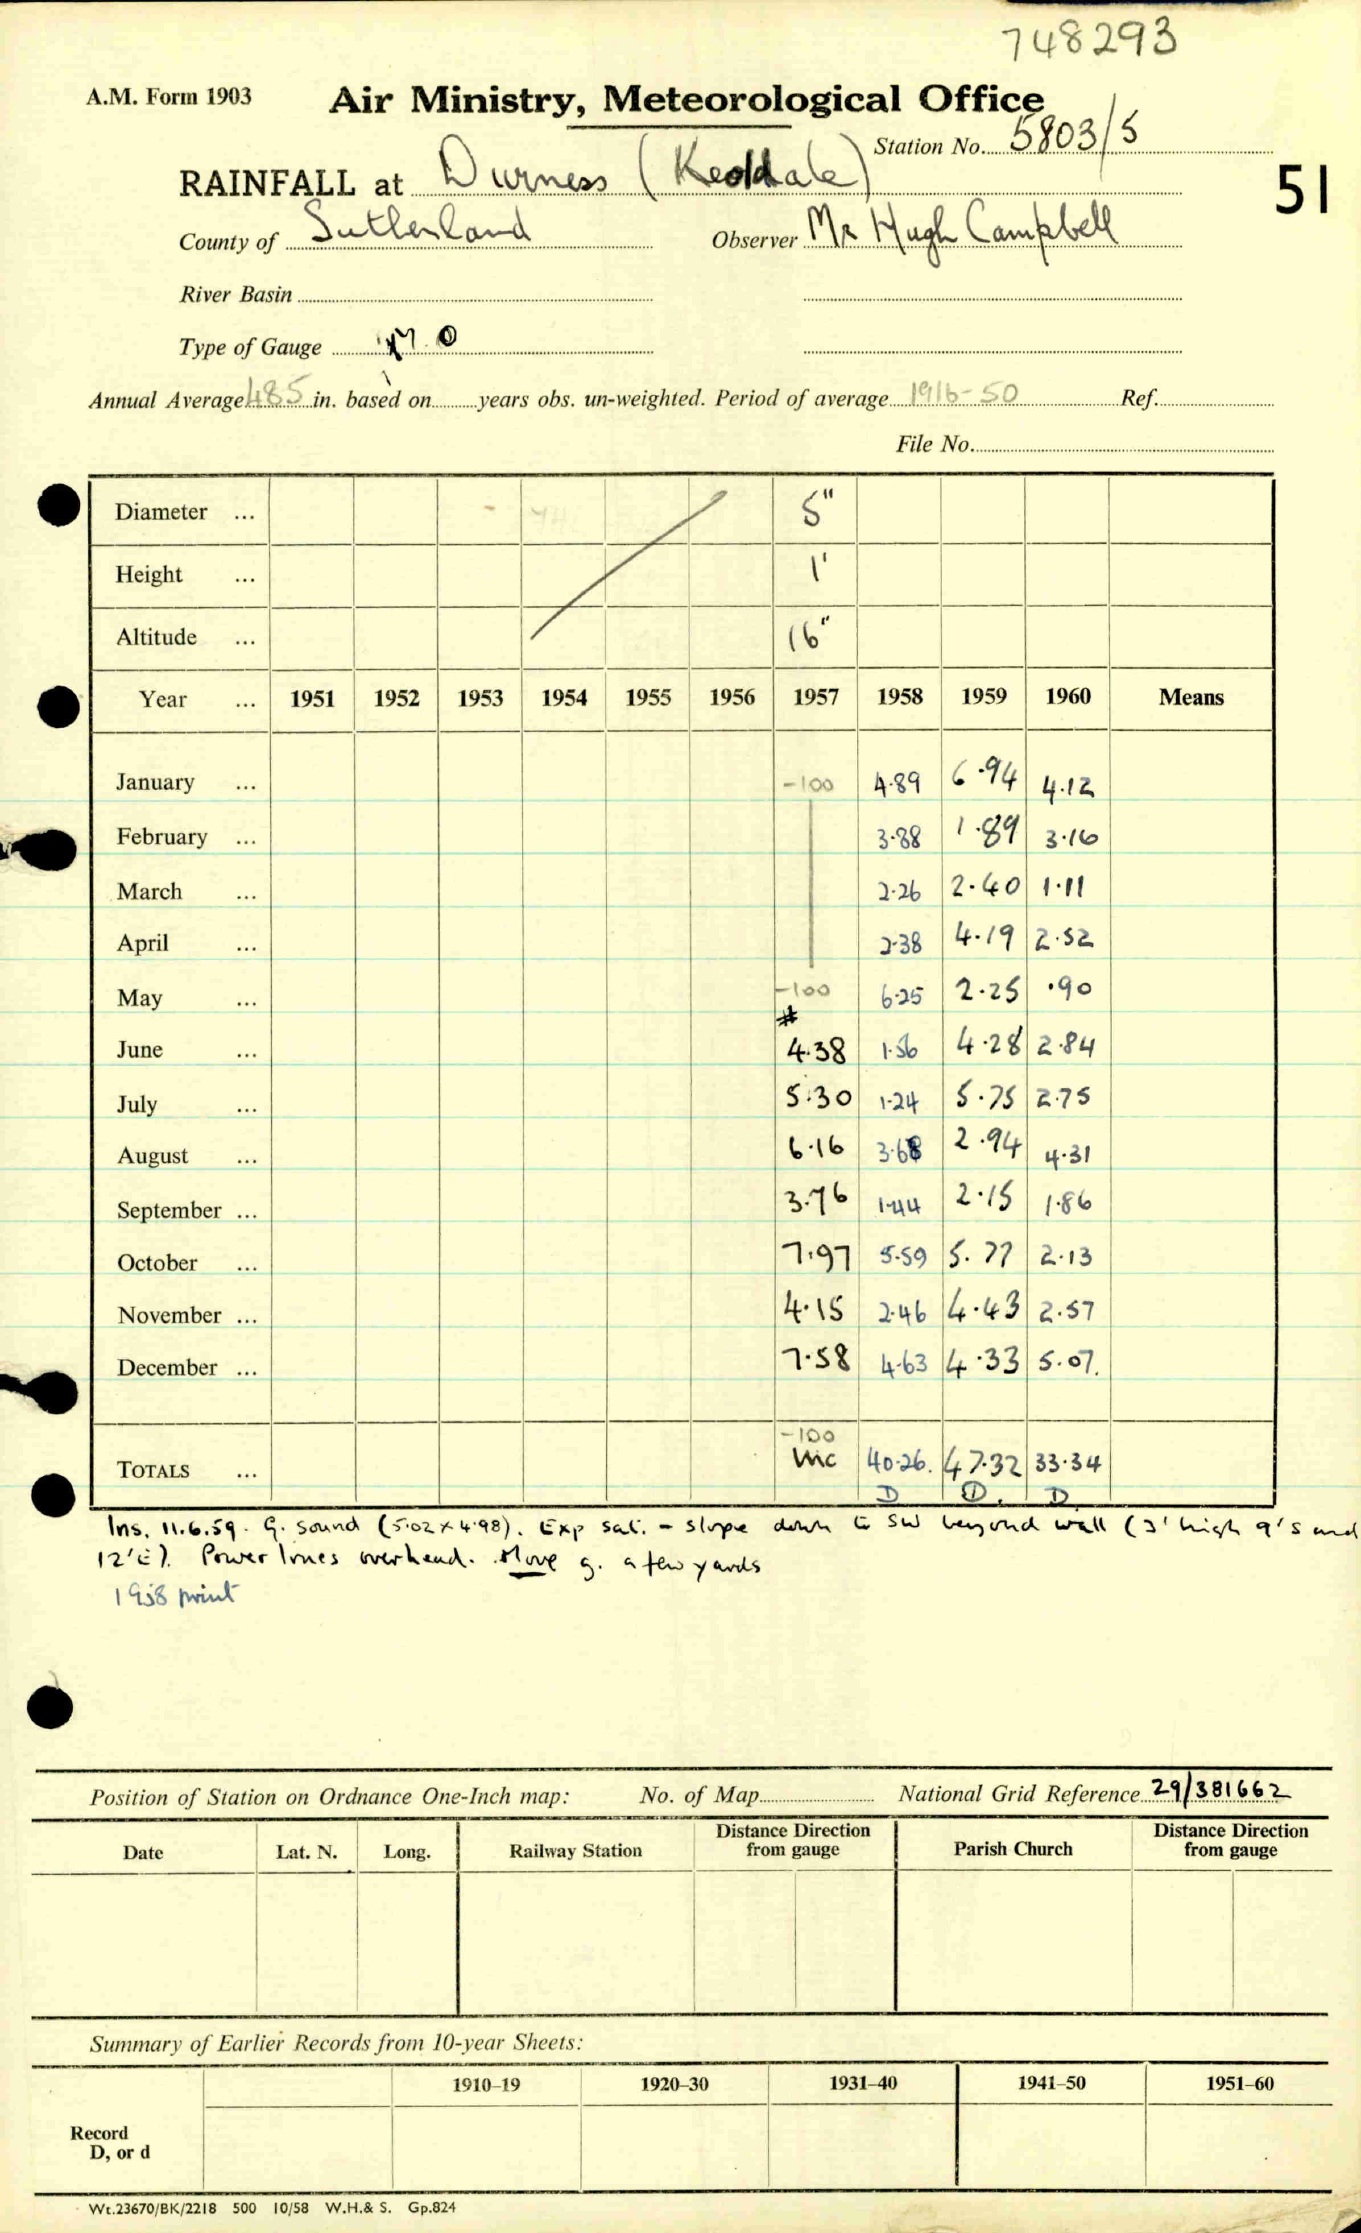 748293
A.M. Form 1903 Air Ministry, Meteorological Office
Station No. 5803/5
RAINFALL at Durness (Keoldale)
51
County of Sutherland Observer Mr Hugh Campbell
River Basin
Type of Gauge M.O
Annual Average 485 in. based on years obs. un-weighted. Period of average 1916-50 Ref.
File No.
Diameter ... 5"
Height ... 1'
Altitude ... 16"
Year ... 1951 1952 1953 1954 1955 1956 1957 1958 1959 1960 Means
January ... -100 4.89 6.94 4.12
February ... 3.88 1.89 3.16
March ... 2.26 2.40 1.11
April ... 2.38 4.19 2.52
May ... -100 6.25 2.25 .90
#
June ... 4.38 1.56 4.28 2.84
July ... 5.30 1.24 5.75 2.75
August ... 6.16 3.68 2.94 4.31
September ... 3.76 1.44 2.15 1.86
October ... 7.97 5.59 5.77 2.13
November ... 4.15 2.46 4.43 2.57
December ... 7.58 4.63 4.33 5.07.
-100
TOTALS ... inc 40.26. 47.32 33.34
D D. D
Ins. 11.6.59. G. sound (5.02 x 4.98). Exp sat. - slope down to SW beyond wall (3' high 9's and
12'E). Power lines overhead. Move g. a few yards
1958 print
Position of Station on Ordnance One-Inch map: No. of Map National Grid Reference 29/381662
Date Lat. N. Long. Railway Station Distance Direction from gauge Parish Church Distance Direction from gauge
Summary of Earlier Records from 10-year Sheets:
1910-19 1920-30 1931-40 1941-50 1951-60
Record
D, or d
Wt.23670/BK/2218 500 10/58 W.H.& S. Gp.824